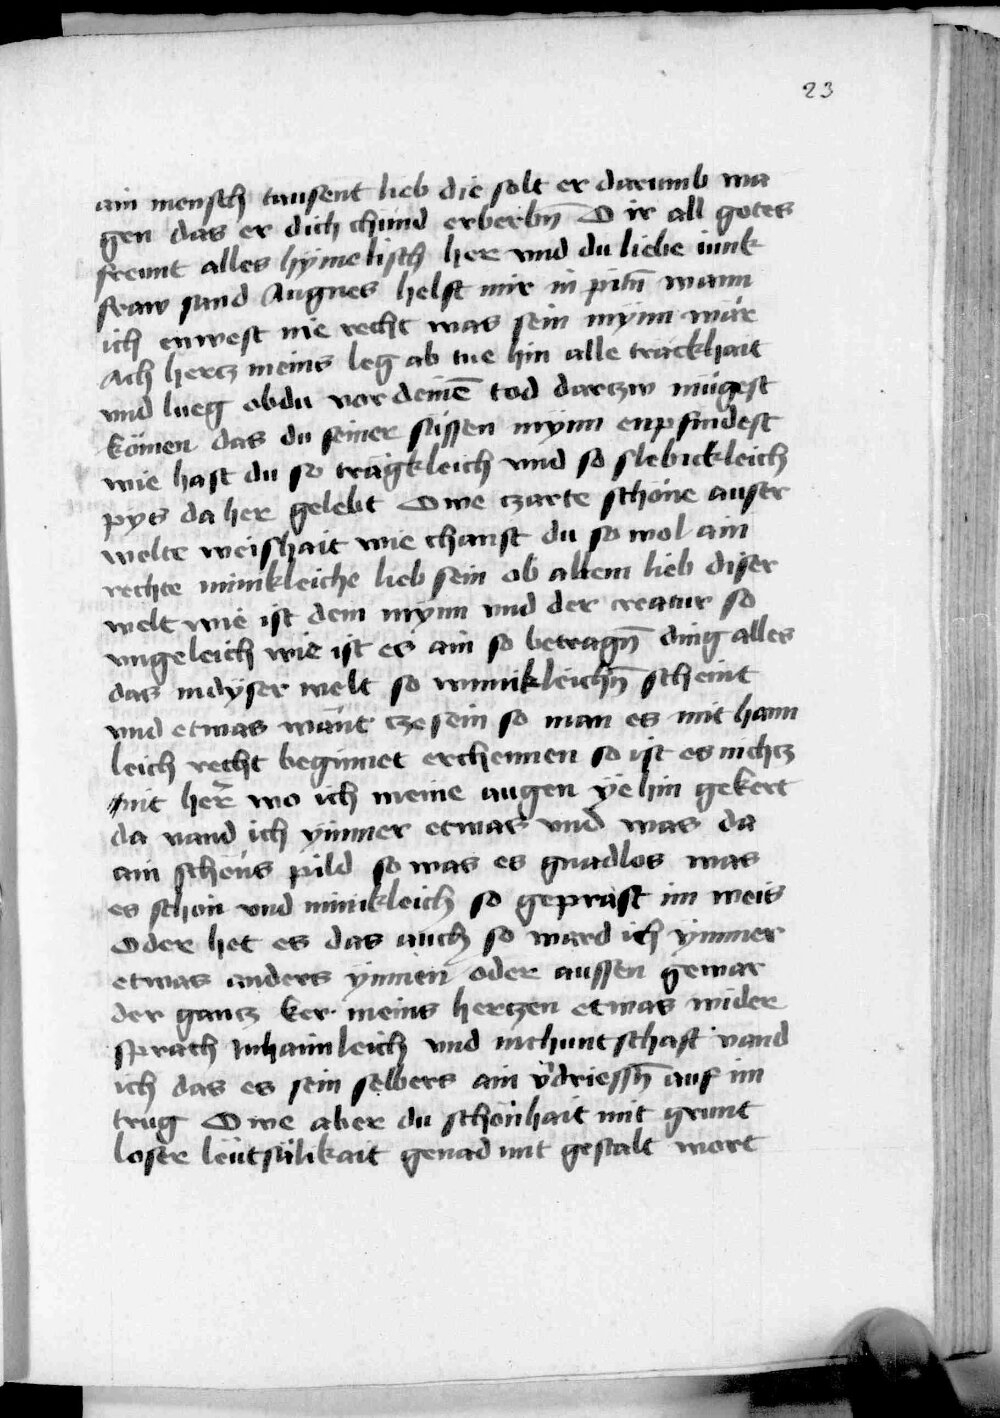 23
ain mensch tausent lieb die solt er darumb wa
gen das er dich chund erberbn̄ O ir all gotes
freunt alles hymelisch her vnd du liebe iunk
fraw sand Augnes helft mir in pitn̄ wann
ich enwest nie recht was sein mÿnn wär
Ach hercz meins leg ab tue hin alle trackhait
vnd lueg obdu vor deinē tod darczw mügest
kömen das du seiner süssen mÿnn enpfindest
wie hast du so trägkleich vnd so slebickleich
pys da her gelebt Owe czarte schöne auser
welte weishait wie chanst du so wol ain
rechte minikleiche lieb sein ob allem lieb diser
welt wie ist dein mynn vnd der creatur so
vngeleich wie ist es ain so betragn̄ ding alles
das indÿser welt so wunnikleichn̄ scheint
vnd etwas wänt cze sein so man es mit haim
leich recht beginnet erchennen so ist es nichcz
mit her wo ich meine augen ÿe hin gekert
da vand ich ÿnner etwas vnd was da
ain schöns pild so was es gnadlos was
es schön vnd minikleich so geprast im weis
Oder het es das auch so ward ich ÿmmer
etwas anders ÿnnen oder aussen gewar
der gancz ker meins herczen etwas wider
sprach Inhaimleich vnd inchuntschaft vand
ich das es sein selbers ain v̈driessn̄ auf im
trug Owe aber du schönhait mit grunt
loser leütsälikait genad mit gestalt wort